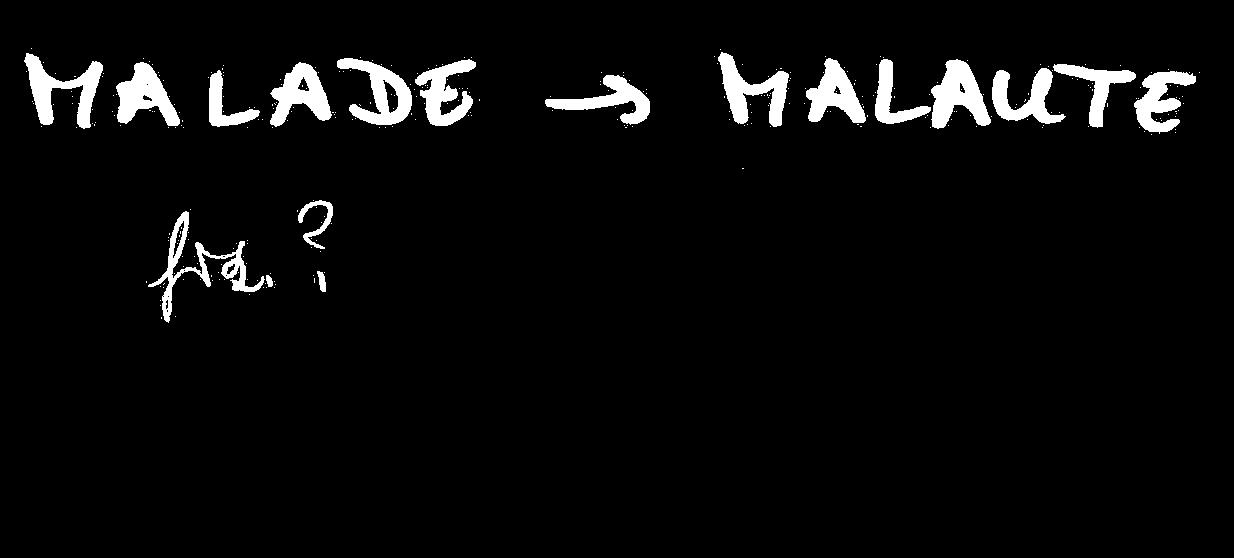 MALADE → MALAUTE
frz. ?